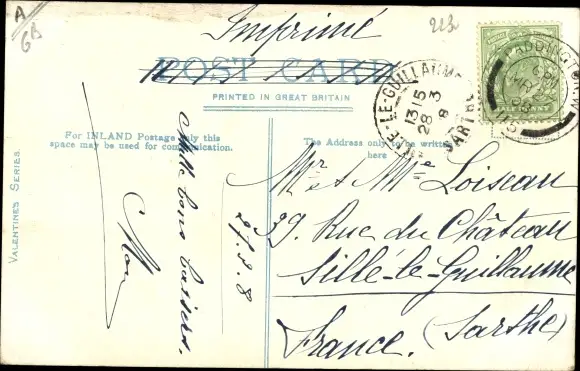 A
GB
Imprimé
213
POST CARD
PRINTED IN GREAT BRITAIN
For INLAND Postage only this
space may be used for communication.
The Address only to be written
here
VALENTINES SERIES.
Mille bons baisers.
27.2.8
Mr et Mme Loiseau
39. Rue du Château
Sillé-le-Guillaume
France. (Sarthe)
LE-GUILLAUME
13 15
28 3
8
SARTHE
PADDINGTON